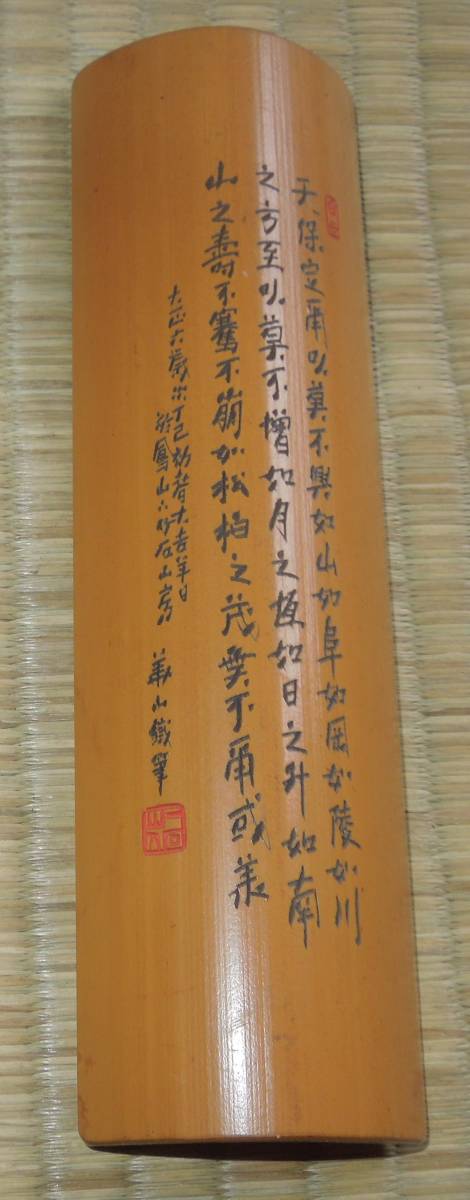 天保定爾以莫不興如山如阜如岡如陵如川
之方至以莫不增如月之恆如日之升如南
山之壽不騫不崩如松柏之茂無不爾或承
大正六歲次丁巳初春大吉羊日
於鳳山六竹石山房
華山鐵筆